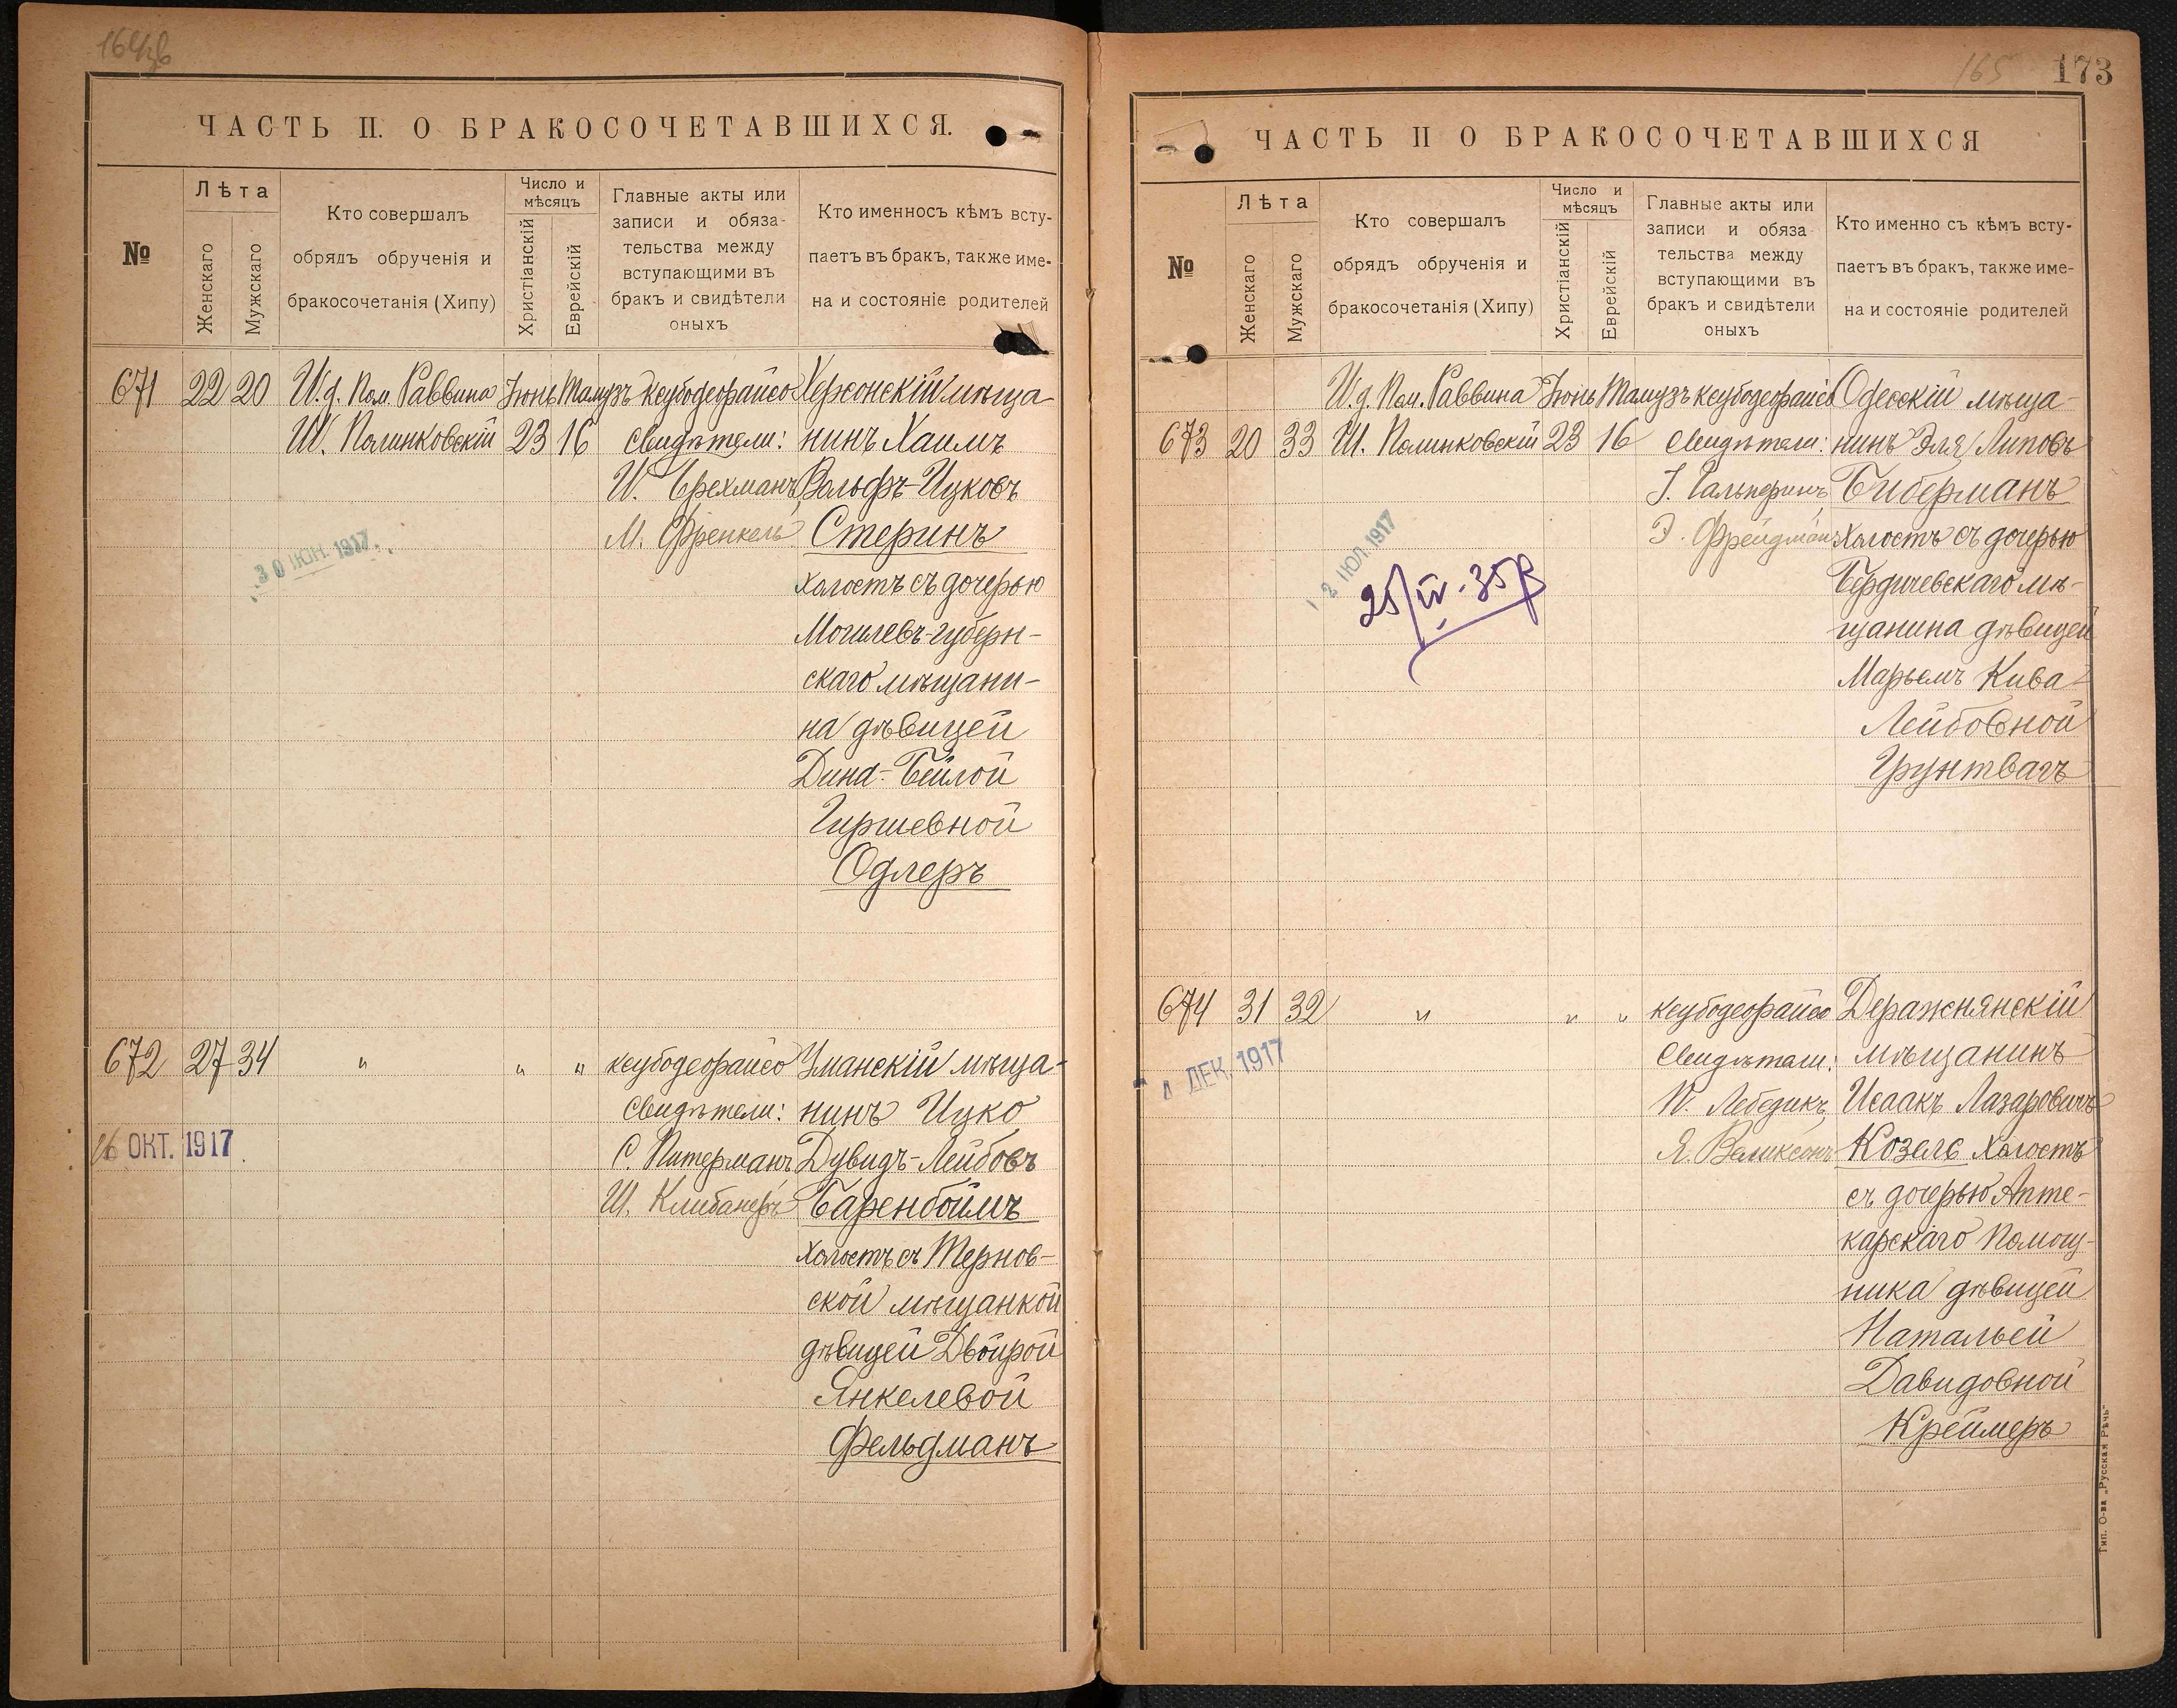 ЧАСТЬ II. О БРАКОСОЧЕТАВШИХСЯ.
№
Лѣта
Женскаго
Мужскаго
Кто совершалъ
обрядъ обрученія и
бракосочетанія (Хипу)
Число и
мѣсяцъ
Христіанскій
Еврейскій
Главные акты или
записи и обяза-
тельства между
вступающими въ
бракъ и свидѣтели
оныхъ
Кто именносъ кѣмъ всту-
паетъ въ бракъ, также име-
на и состояніе родителей
671 22 20 И.д. Пом. Раввина Іюнь Тамузъ ксубодеорайсо Херсонскій мѣща-
Ш. Полинковскій 23 16 Свидѣтели: нинъ Хаимъ
Вольфъ-Ицковъ
М. Френкель Стеринъ
30 ИЮН. 1917
холостъ съ дочерью
Могилевъ-губерн-
скаго мѣщани-
на дѣвицей
Дина-Бейлой
Гиршевной
Одлеръ
672 27 34 " " " ксубодеорайсо Уманскій мѣща-
Свидѣтели: нинъ Ицко
16 ОКТ. 1917
С. Питерманъ, Дувидъ-Лейбовъ
Ш. Клибанеръ Баренбоймъ
холостъ съ Тернов-
ской мѣщанкой
дѣвицей Двойрой
Янкелевой
Фельдманъ
165 173
ЧАСТЬ II О БРАКОСОЧЕТАВШИХСЯ
№
Лѣта
Женскаго
Мужскаго
Кто совершалъ
обрядъ обрученія и
бракосочетанія (Хипу)
Число и
мѣсяцъ
Христіанскій
Еврейскій
Главные акты или
записи и обяза
тельства между
вступающими въ
бракъ и свидѣтели
оныхъ
Кто именно съ кѣмъ всту-
паетъ въ бракъ, также име-
на и состояніе родителей
И.д. Пом. Раввина Іюнь Тамузъ ксубодеорайсо Одесскій мѣща-
673 20 33 Ш. Полинковскій 23 16 Свидѣтели: нинъ Эля Липовъ
І. Гальперинъ, Биберманъ
Э. Фрейдманъ холостъ съ дочерью
2 ИЮЛ. 1917
25/IV-35
Бердичевскаго мѣ-
щанина дѣвицей
Марьемъ Кива-
Лейбовной
Грунтвагъ
674 31 32 " " " ксубодеорайсо Деражнянскій
Свидѣтели: мѣщанинъ
ДЕК. 1917
Лебедикъ, Исаакъ Лазаровичъ
Я. Великсонъ Козелъ холостъ
съ дочерью Апте-
карскаго Помощ-
ника дѣвицей
Натальей
Давидовной
Креймеръ
Тип. О-ва „Русская Рѣчь"